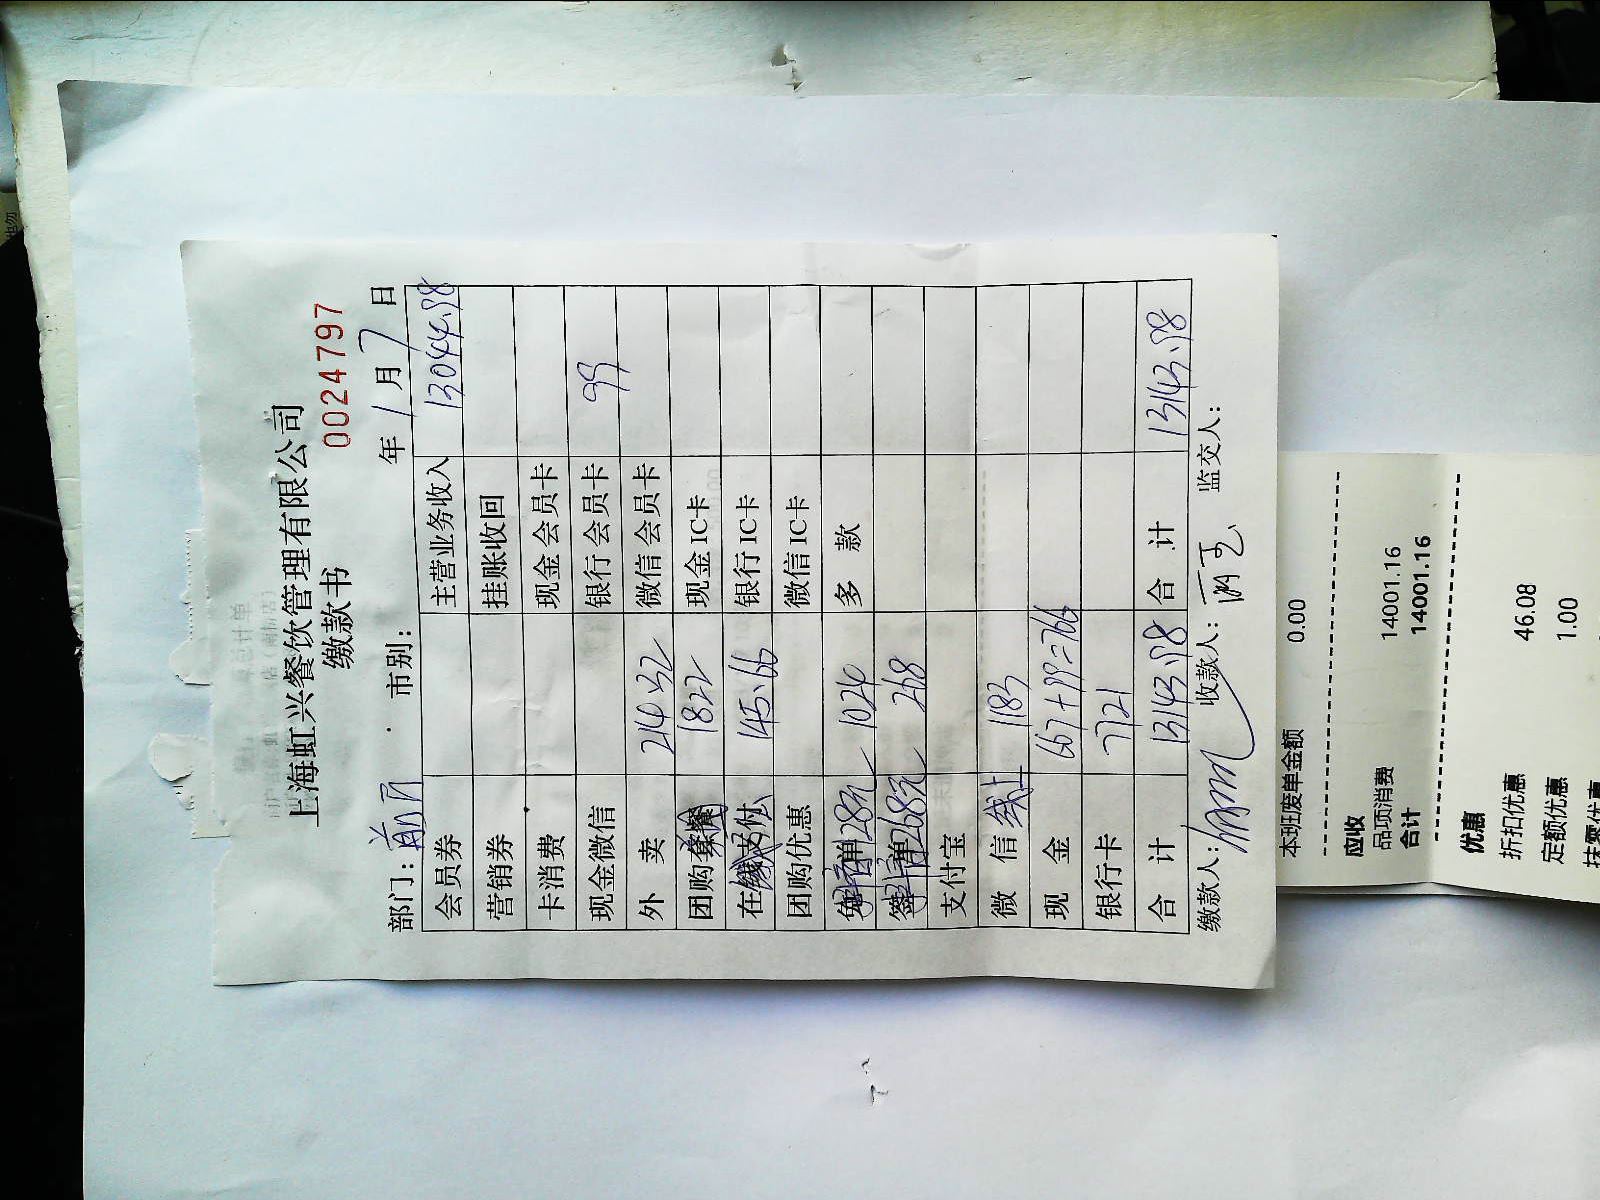 上海虹兴餐饮管理有限公司
缴款书
0024797
部门：前厅 市别： 年 1 月 7 日
会员券 主营业务收入 13044.98
营销券 挂账收回
卡消费 现金会员卡
现金微信 银行会员卡 99
外 卖 214.32 微信会员卡
团购 1822 现金IC卡
在 145.66 银行IC卡
团购优惠 微信IC卡
128元 1024 多 款
268元 268
支付宝
微 信 线上 1183
现 金 667+99=766
银行卡 7721
合 计 13143.98 合 计 13143.98
缴款人： 收款人： 监交人：
本班废单金额 0.00
应收
品项消费 14001.16
合计 14001.16
优惠
折扣优惠 46.08
定额优惠 1.00
抹零优惠